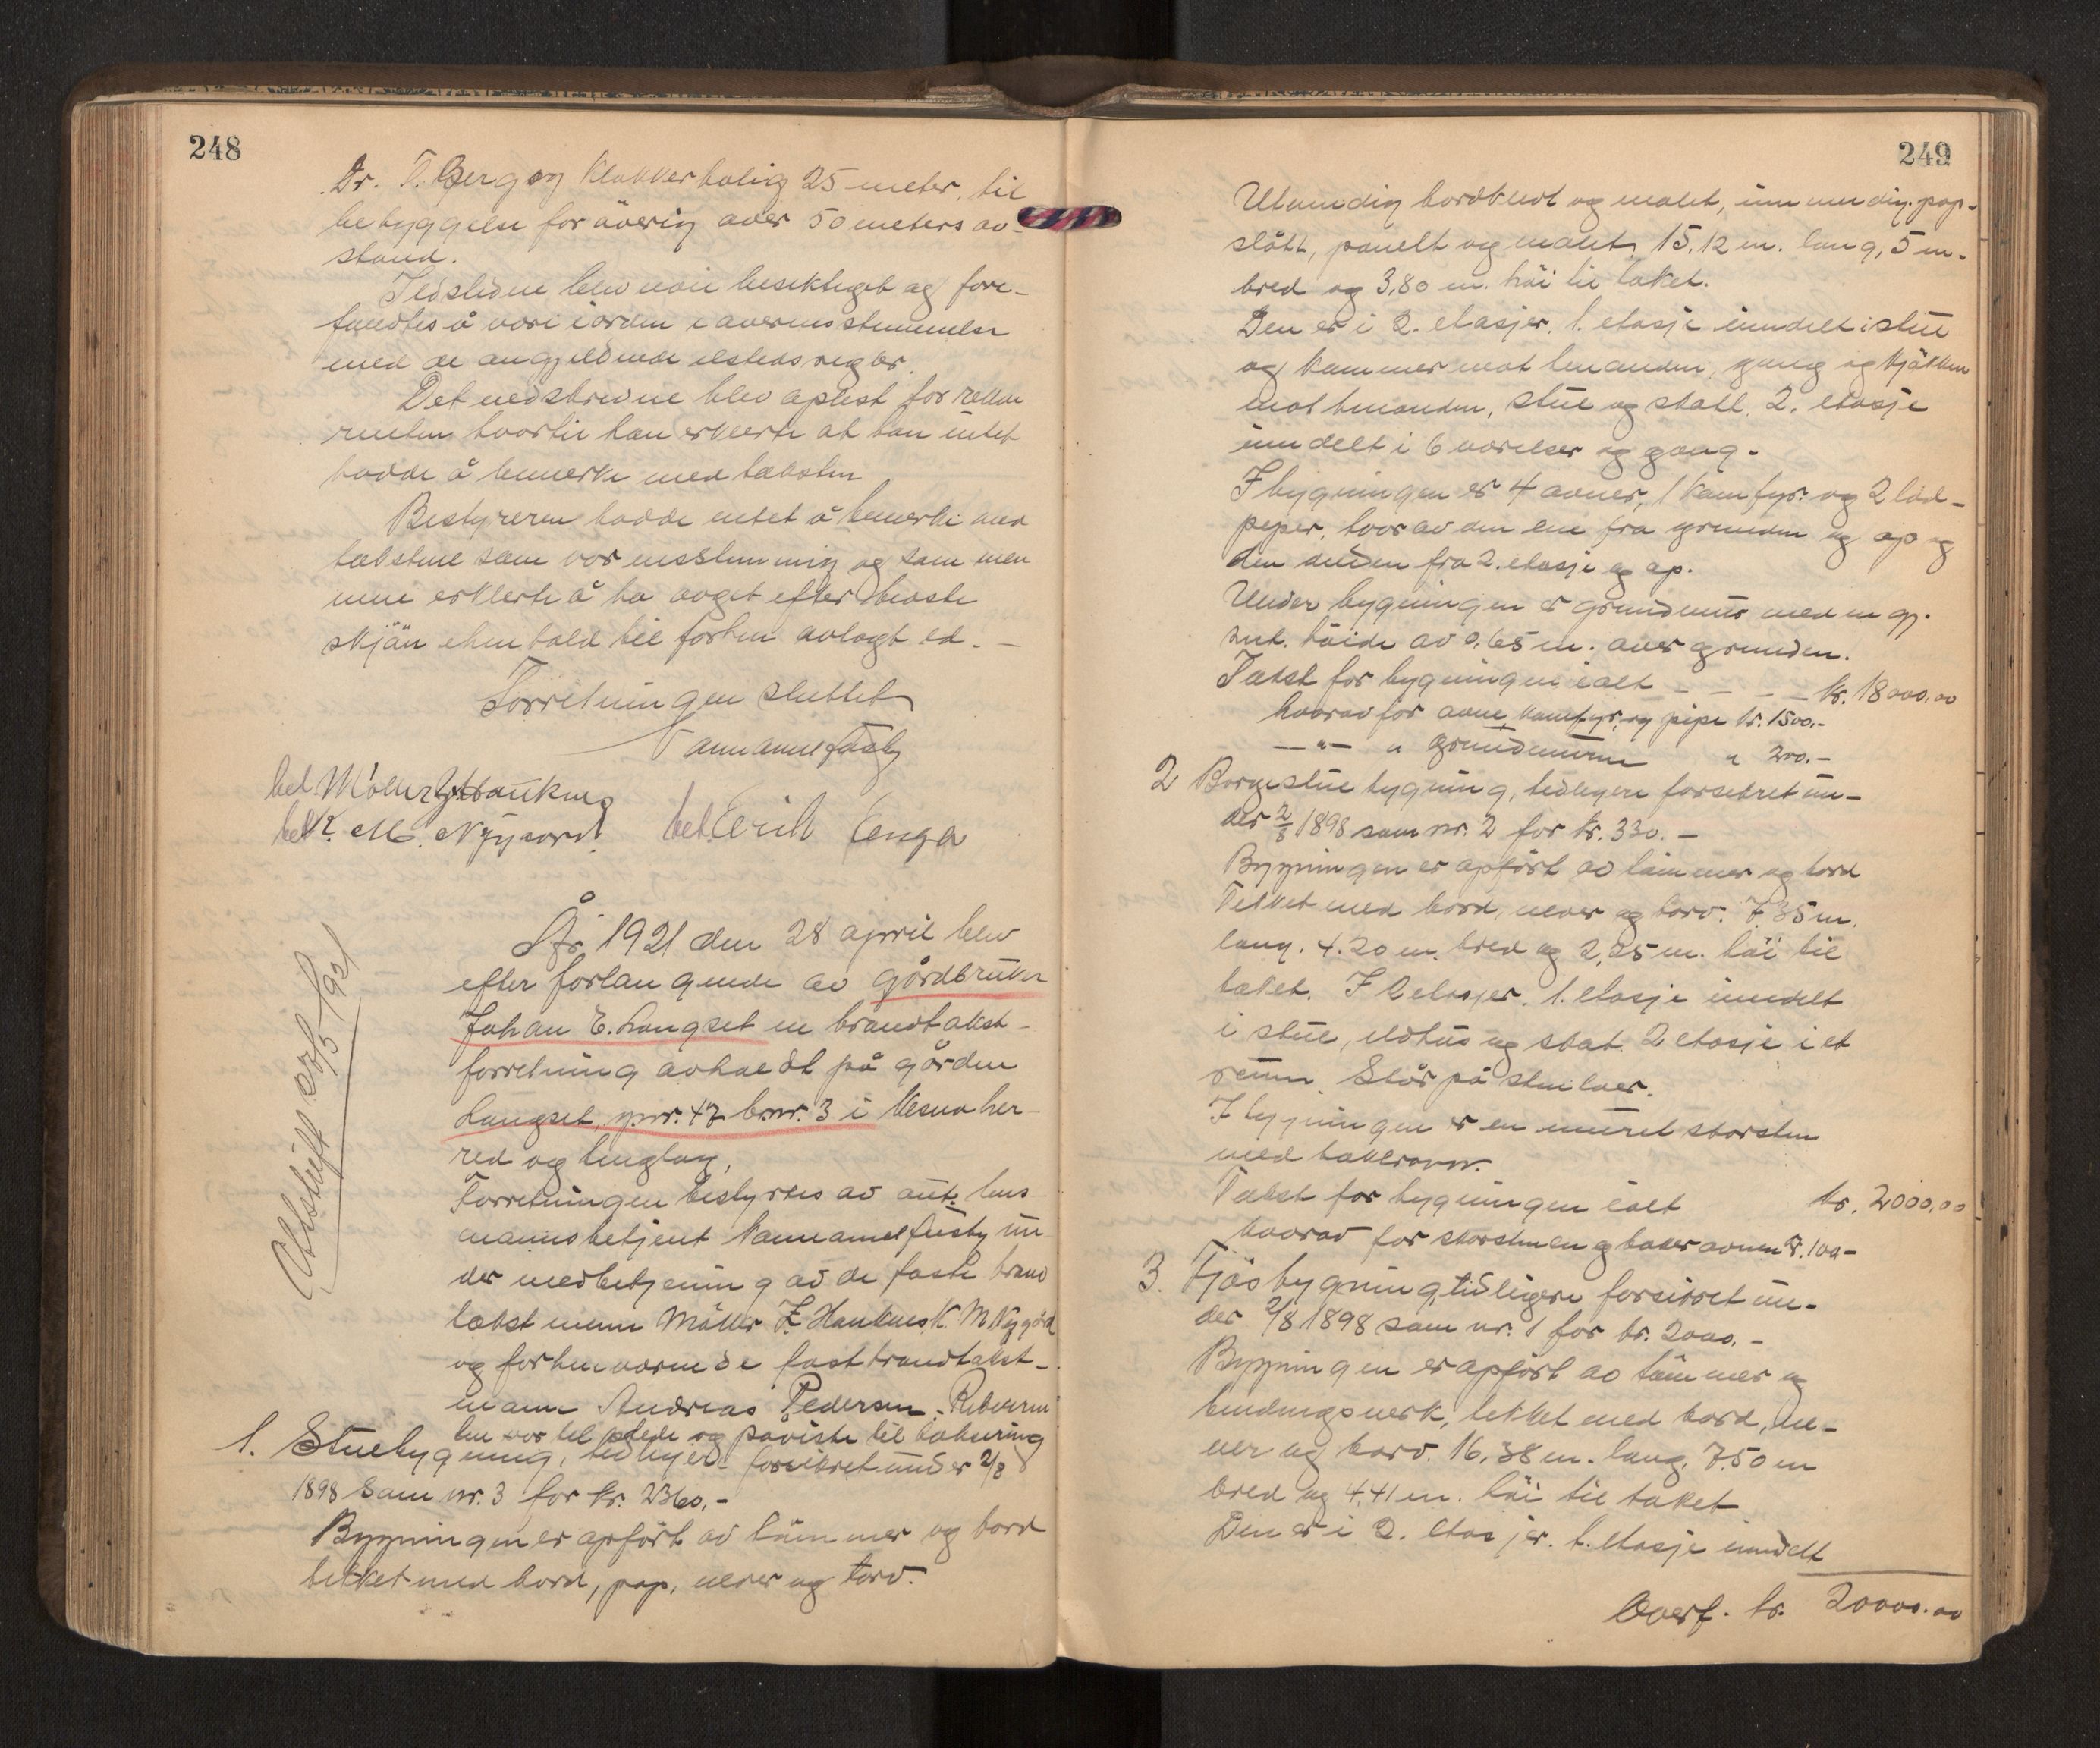 248
Dr. T. Berg og Klokkerbolig 25 meter, til
bebyggelse for øverig over 50 meters av-
stand.
Ildstedne blev nøie besiktiget og fore-
fundtes å være i orden i overensstemmelse
med de angjeldende ildstedsregler.
Det nedskrevne blev oplest for rekvi
renten hvortil han erklerte at han intet
hadde å bemerke med taksten
Bestyreren hadde intet å bemerke med
takstene som var enstemmig og som men
nene erklerte å ha avget efter beste
skjön i henhold til forhen avlagt ed. —
Forretningen sluttet
bet Möller Z. Hauknes
bet K. M. Nygaard. bet. Erik Enga
Avskrift 27/5 1921
År 1921 den 28 april blev
efter forlangende av gårdbruker
Johan E. Langset en brandtakst-
forretning avholdt på gården
Langset, gnr. 47 bnr. 3 i Nesna her-
red og tinglag,
Forretningen bestyrtes av aut. lens
mannsbetjent under
medbetjening av de faste brand
takstmenn Möller Z. Haukness K. M. Nygård
og forhenværende fast brandtakst-
mann Andreas Pedersen. Rekviren
ten var tilstede og påviste til taksering
1. Stuebygning, tidligere forsikret under 2/8
1898 som nr. 3 for kr. 2360.-
Bygningen er opført av tömmer og bord
tekket med bord, pap, never og torv.
249
Utvendig bordkledt og malt, innvendig pap-
slått, panelt og malt, 15,12 m. lang, 5 m.
bred og 3,80 m. höi til taket.
Den er i 2. etasjer. 1. etasje inndelt i stue
og kammer mot hinanden, gang og kjökken
mot hinanden, stue og stall. 2. etasje
inndelt i 6 værelser og gang.
I bygningen er 4 ovner, 1 komfyr og 2 löd-
piper, hvorav den ene fra grunden og op og
den anden fra 2. etasje og op.
Under bygningen er grundmur med en gj.
snt. höide av 0,65 m. over grunden.
Takst for bygningen ialt — — — — kr. 18000,00
hvorav for ovne, komfyr og pipe kr. 1500.-
—"— " grundmuren " 200.-
2 Borgestuebygning, tidligere forsikret un-
der 2/8 1898 som nr. 2 for kr. 330.-
Bygningen er opført av tömmer og bord
Tekket med bord, never og torv. 7,35 m.
lang. 4.20 m. bred og 2,25 m. höi til
taket. I 2 etasjer. 1. etasje inndelt
i stue, ildhus og 2 etasje i et
rum. Står på
I bygningen er en muret storsten
med bakerovn.
Takst for bygningen ialt kr. 2000,00
hvorav for skorstenen og bakerovnen kr. 100-
3. Fjösbygning, tidligere forsikret un-
der 2/8 1898 som nr. 1 for kr. 2000.-
Bygningen er opført av tömmer og
bindingsverk, tekket med bord, ne-
ver og torv. 16,38 m. lang, 7,50 m
bred og 4,41 m. höi til taket
Den er i 2. etasjer. 1. etasje inndelt
Overf. kr. 20000.00